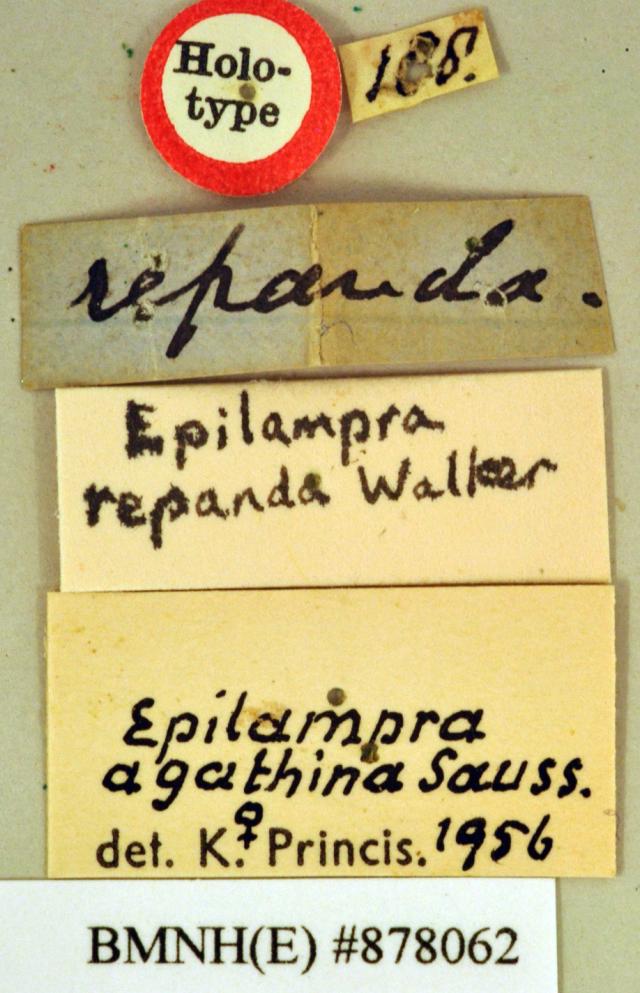 Holo-
type
188.
repanda.
Epilampra
repanda Walker
Epilampra
agathina Sauss.
♀
det. K. Princis. 1956
BMNH(E) #878062